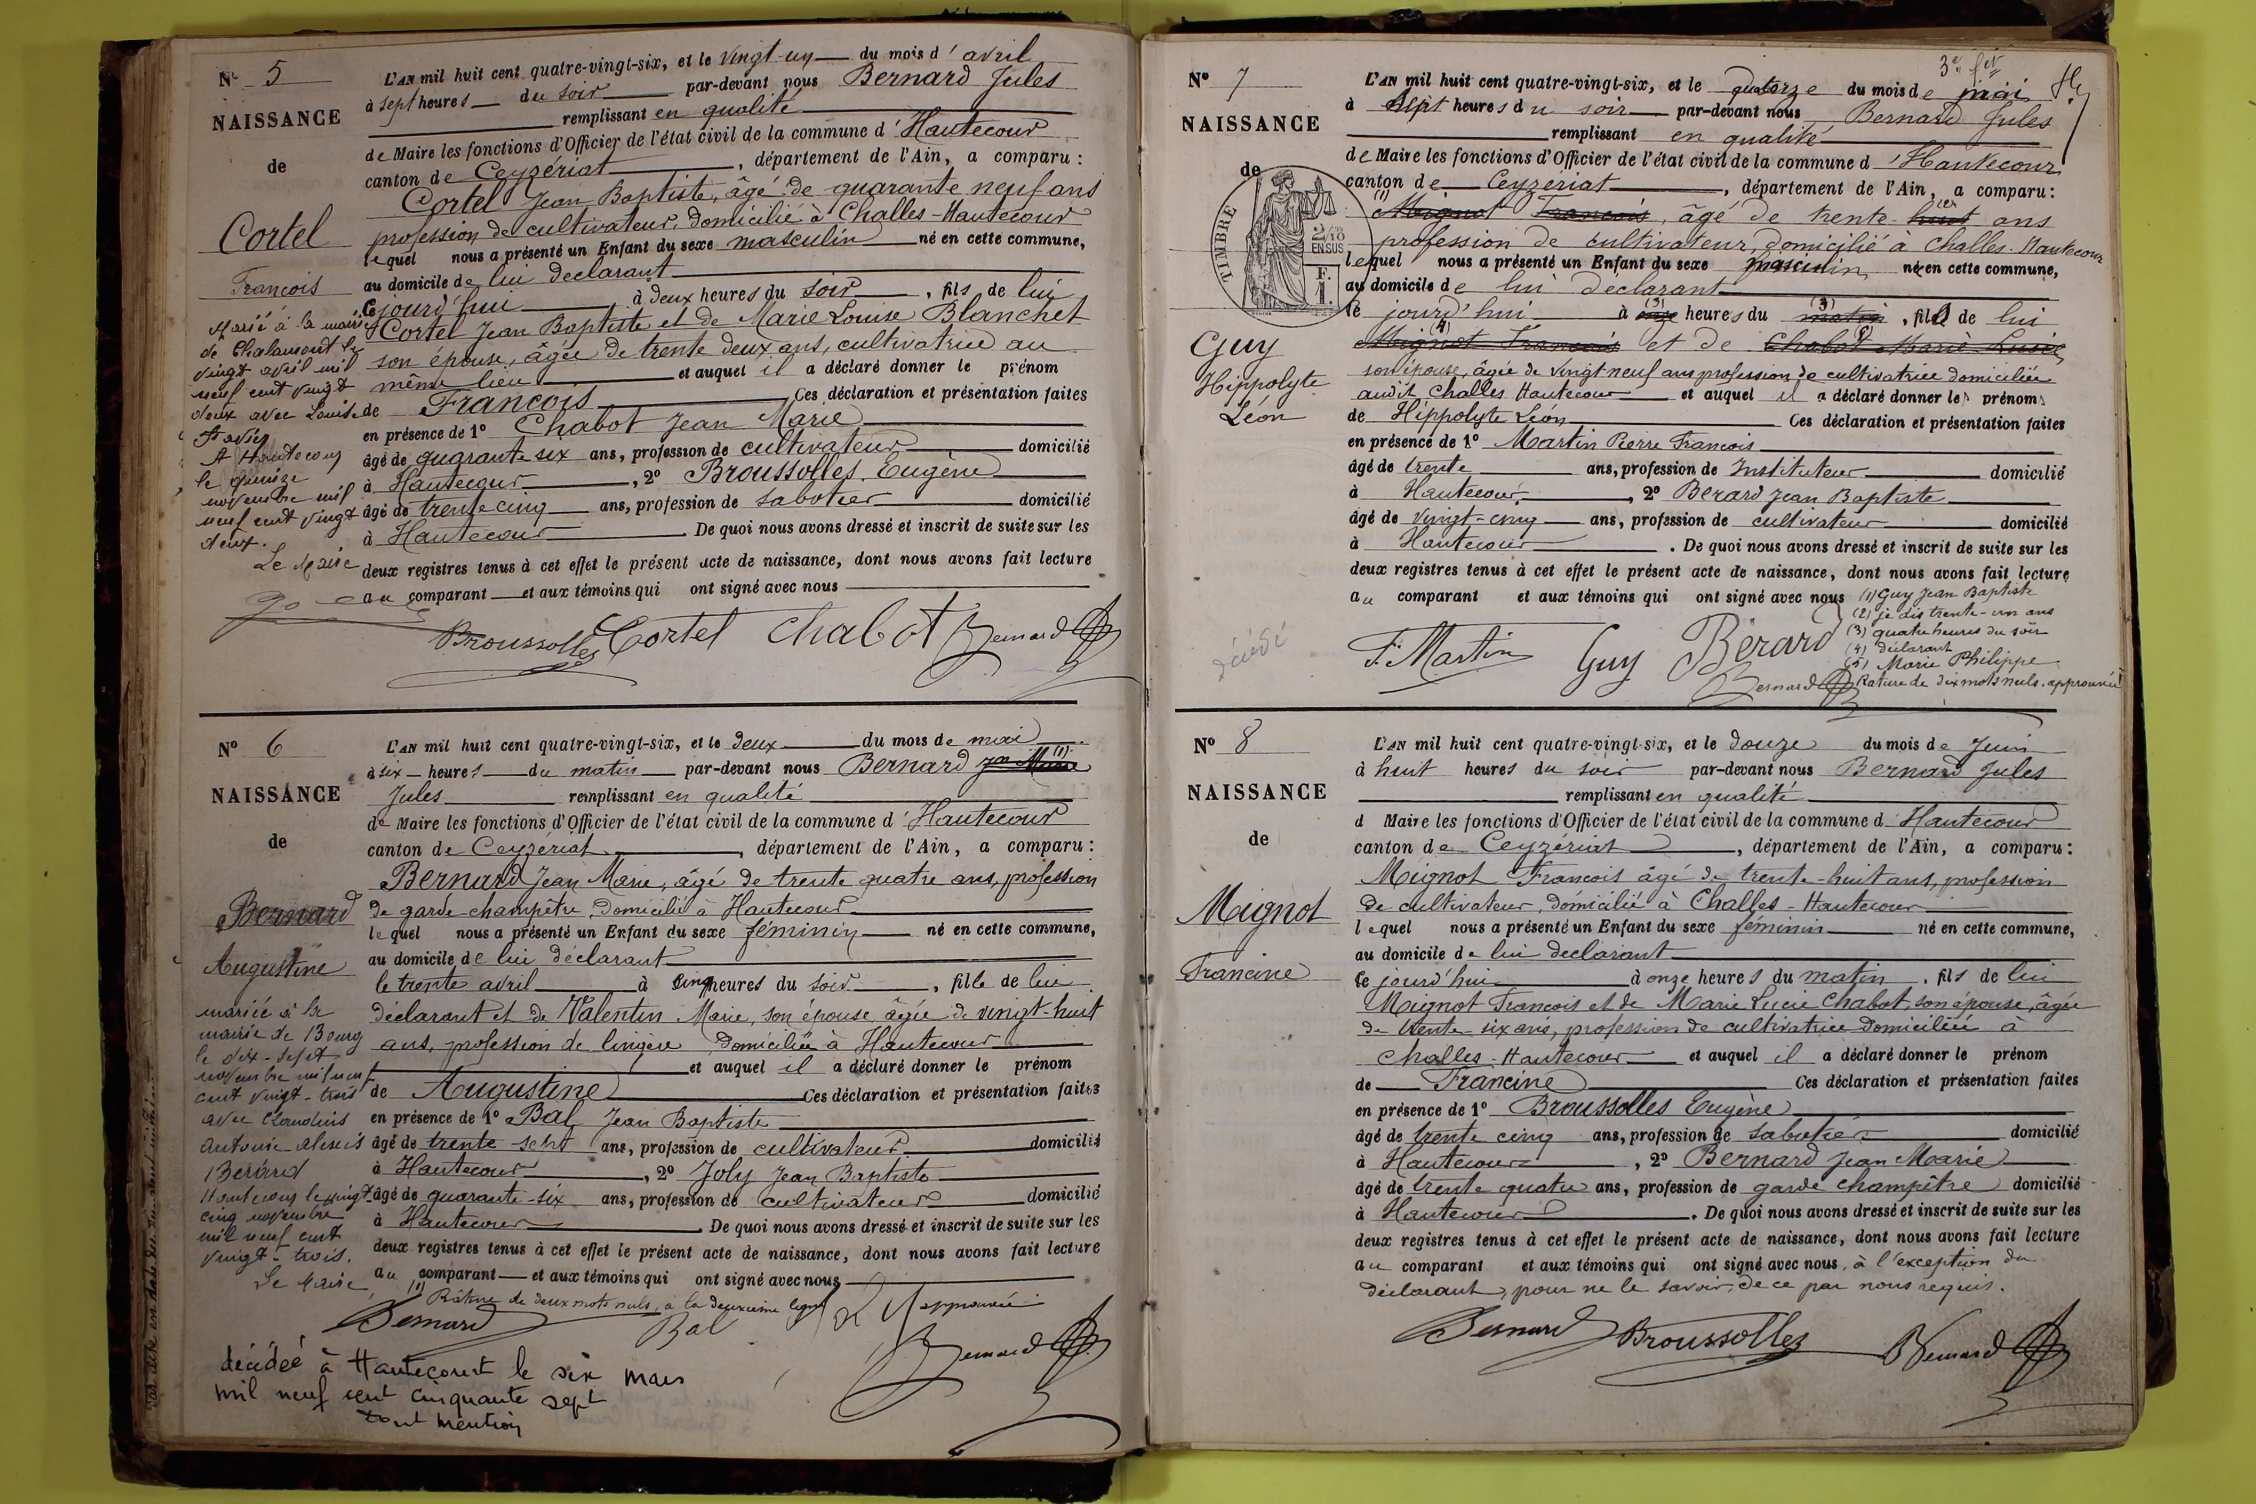 N° 5
NAISSANCE
de
Cortel
François
Marié à la mairie
de Chalamont le
vingt avril mil
neuf cent vingt
deux avec Louise
A Hautecour
le quinze
novembre mil
neuf cent vingt
deux.
Le Maire
L'AN mil huit cent quatre-vingt-six, et le vingt-un du mois d'avril
à sept heures du soir par-devant nous Bernard Jules
remplissant en qualité
de Maire les fonctions d'Officier de l'état civil de la commune d'Hautecour
canton de Ceyzériat, département de l'Ain, a comparu :
Cortel Jean Baptiste, âgé de quarante neuf ans
profession de cultivateur, domicilié à Challes-Hautecour
lequel nous a présenté un Enfant du sexe masculin né en cette commune,
au domicile de lui déclarant
cejourd'hui à deux heures du soir, fils de lui
Cortel Jean Baptiste et de Marie Louise Blanchet
son épouse, âgée de trente deux ans, cultivatrice au
même lieu et auquel il a déclaré donner le prénom
de François Ces déclaration et présentation faites
en présence de 1° Chabot Jean Marie
âgé de quarante six ans, profession de cultivateur domicilié
à Hautecour, 2° Broussolles Eugène
âgé de trente cinq ans, profession de sabotier domicilié
à Hautecour De quoi nous avons dressé et inscrit de suite sur les
deux registres tenus à cet effet le présent acte de naissance, dont nous avons fait lecture
au comparant et aux témoins qui ont signé avec nous
Broussolles Cortel Chabot Bernard
N° 6
NAISSANCE
de
Bernard
Augustine
mariée à la
mairie de Bourg
le dix-sept
novembre mil neuf
cent vingt-trois
avec Claudius
Antoine Alexis
Berard
Hautecour le vingt
cinq novembre
mil neuf cent
vingt-trois.
Le Maire
L'AN mil huit cent quatre-vingt-six, et le deux du mois de mai
à six heures du matin par-devant nous Bernard Jn Marie (1)
Jules remplissant en qualité
de Maire les fonctions d'Officier de l'état civil de la commune d'Hautecour
canton de Ceyzeriat, département de l'Ain, a comparu :
Bernard Jean Marie, âgé de trente quatre ans, profession
de garde-champêtre, domicilié à Hautecour
lequel nous a présenté un Enfant du sexe féminin né en cette commune,
au domicile de lui déclarant
le trente avril à cinq heures du soir, fille de lui
déclarant et de Valentin Marie, son épouse âgée de vingt-huit
ans, profession de lingère domiciliée à Hautecour
et auquel il a déclaré donner le prénom
de Augustine Ces déclaration et présentation faites
en présence de 1° Bal Jean Baptiste
âgé de trente-sept ans, profession de cultivateur domicilié
à Hautecour, 2° Joly Jean Baptiste
âgé de quarante-six ans, profession de cultivateur domicilié
à Hautecour. De quoi nous avons dressé et inscrit de suite sur les
deux registres tenus à cet effet le présent acte de naissance, dont nous avons fait lecture
au comparant et aux témoins qui ont signé avec nous
(1) Râture de deux mots nuls, à la deuxième ligne approuvée
Bernard Bal Bernard
décédée à Hautecourt le six mars
mil neuf cent cinquante sept
dont mention
N° 7
NAISSANCE
de
TIMBRE
2/10 EN SUS
Guy
Hippolyte
Léon
décédé
L'AN mil huit cent quatre-vingt-six, et le quatorze du mois de mai
à sept heures du soir par-devant nous Bernard Jules
remplissant en qualité
de Maire les fonctions d'Officier de l'état civil de la commune d'Hautecour
canton de Ceyzériat, département de l'Ain, a comparu :
(1) Mignot François, âgé de trente-huit ans
profession de cultivateur, domicilié à Challes-Hautecour
lequel nous a présenté un Enfant du sexe masculin né en cette commune,
au domicile de lui déclarant
le jourd'hui à onze (3) heures du matin (3), fils de lui
Mignot François (4) et de Chabot Marie Lucie (5)
son épouse, âgée de vingt neuf ans profession de cultivatrice domiciliée
audit Challes Hautecour et auquel il a déclaré donner les prénoms
de Hippolyte Léon Ces déclaration et présentation faites
en présence de 1° Martin Pierre François
âgé de trente ans, profession de Instituteur domicilié
à Hautecour, 2° Bérard Jean Baptiste
âgé de vingt-cinq ans, profession de cultivateur domicilié
à Hautecour. De quoi nous avons dressé et inscrit de suite sur les
deux registres tenus à cet effet le présent acte de naissance, dont nous avons fait lecture
au comparant et aux témoins qui ont signé avec nous (1) Guy Jean Baptiste
(2) je dis trente-un ans
(3) quatre heures du soir
(4) déclarant
(5) Marie Philippe
Rature de dix mots nuls approuvée
F. Martin Guy Bérard Bernard
N° 8
NAISSANCE
de
Mignot
Francine
L'AN mil huit cent quatre-vingt-six, et le douze du mois de Juin
à huit heures du soir par-devant nous Bernard Jules
remplissant en qualité
d Maire les fonctions d'Officier de l'état civil de la commune d Hautecour
canton de Ceyzériat, département de l'Ain, a comparu :
Mignot François âgé de trente-huit ans, profession
de cultivateur, domicilié à Challes-Hautecour
lequel nous a présenté un Enfant du sexe féminin né en cette commune,
au domicile de lui déclarant
le jourd'hui à onze heures du matin, fils de lui
Mignot François et de Marie Lucie Chabot son épouse, âgée
de trente-six ans, profession de cultivatrice domiciliée à
Challes-Hautecour et auquel il a déclaré donner le prénom
de Francine Ces déclaration et présentation faites
en présence de 1° Broussolles Eugène
âgé de trente cinq ans, profession de sabotier domicilié
à Hautecour, 2° Bernard Jean Marie
âgé de trente quatre ans, profession de garde champêtre domicilié
à Hautecour. De quoi nous avons dressé et inscrit de suite sur les
deux registres tenus à cet effet le présent acte de naissance, dont nous avons fait lecture
au comparant et aux témoins qui ont signé avec nous, à l'exception du
déclarant, pour ne le savoir, de ce par nous requis.
Bernard Broussolles Bernard